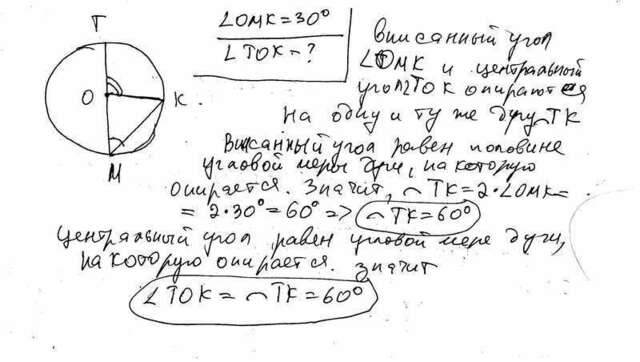 Т
О
К
М
∠ОМК=30°
∠ТОК-?
вписанный угол
∠ТОМК и центральный
угол∠ТОК опираются
на одну и ту же дугу ⌒ТК
Вписанный угол равен половине
угловой меры дуги, на которую
опирается. Значит, ⌒ТК=2·∠ОМК=
=2·30°=60°=>⌒ТК=60°
Центральный угол равен угловой мере дуги,
на которую опирается. значит
∠ТОК=⌒ТК=60°